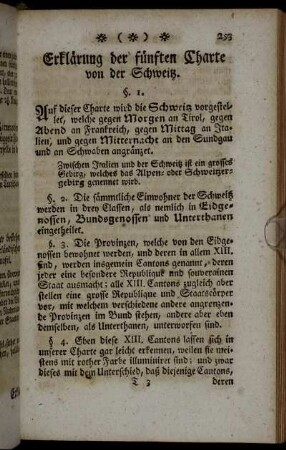 * ( * ) * 293
Erklärung der fünften Charte
von der Schweitz.
§. 1.
Auf dieser Charte wird die Schweitz vorgestel-
let, welche gegen Morgen an Tirol, gegen
Abend an Frankreich, gegen Mittag an Ita-
lien, und gegen Mitternacht an den Sundgau
und an Schwaben angränzet.
Zwischen Italien und der Schweitz ist ein grosses
Gebirg, welches das Alpen- oder Schweitzer-
gebirg genennet wird.
§. 2. Die sämmtliche Einwohner der Schweitz
werden in drey Classen, als nemlich in Eidge-
nossen, Bundsgenossen und Unterthanen
eingetheilet.
§. 3. Die Provinzen, welche von den Eidge-
nossen bewohnet werden, und deren in allem XIII.
sind, werden insgemein Cantons genannt, deren
jeder eine besondere Republiquk und souverainen
Staat ausmacht; alle XIII. Cantons zugleich aber
stellen eine grosse Republique und Staatscörper
vor, mit welchem verschiedene andere angrenzen-
de Provinzen im Bund stehen, andere aber eben
demselben, als Unterthanen, unterworfen sind.
§. 4. Eben diese XIII. Cantons lassen sich in
unserer Charte gar leicht erkennen, weilen sie we-
nistens mit rother Farbe illuminiret sind; und zwar
dieses mit dem Unterschied, daß diejenige Cantons,
T 3 deren